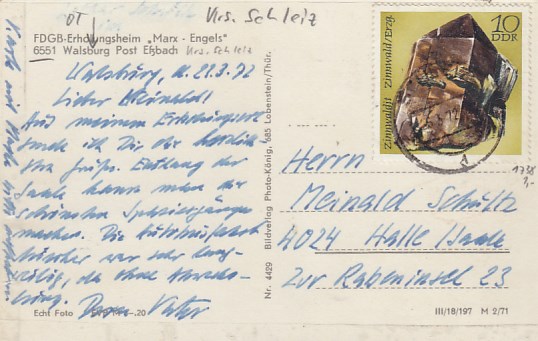 OT
Krs. Schleiz
FDGB-Erholungsheim „Marx - Engels"
6551 Walsburg Post Eßbach Krs. Schleiz
Walsburg, d. 21.3.72
Lieber Meinald!
Aus meinem Erholungsort
sende ich Dir die herzlich
sten Grüße. Entlang der
Saale kann man die
schönsten Spaziergänge
machen. Die
war sehr lang-
weilig, da ohne Abwechs-
lung. Dein Vater
Echt Foto
Nr. 4429 Bildverlag Photo-König, 685 Lobenstein/Thür.
10
DDR
Zinnwaldit Zinnwald/Erzg.
Herrn
Meinald Schultz
4024 Halle/Saale
Zur Rabeninsel 23
1738
III/18/197 M 2/71